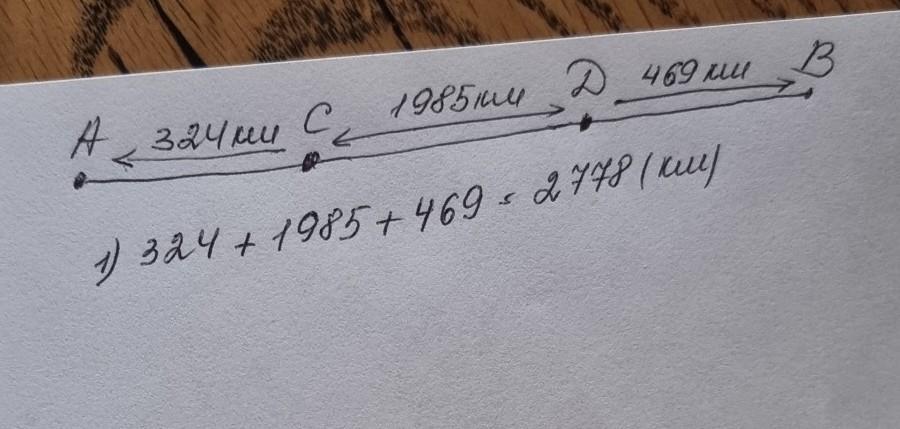 A 324 км C 1985 км D 469 км B
1) 324 + 1985 + 469 = 2778 (км)